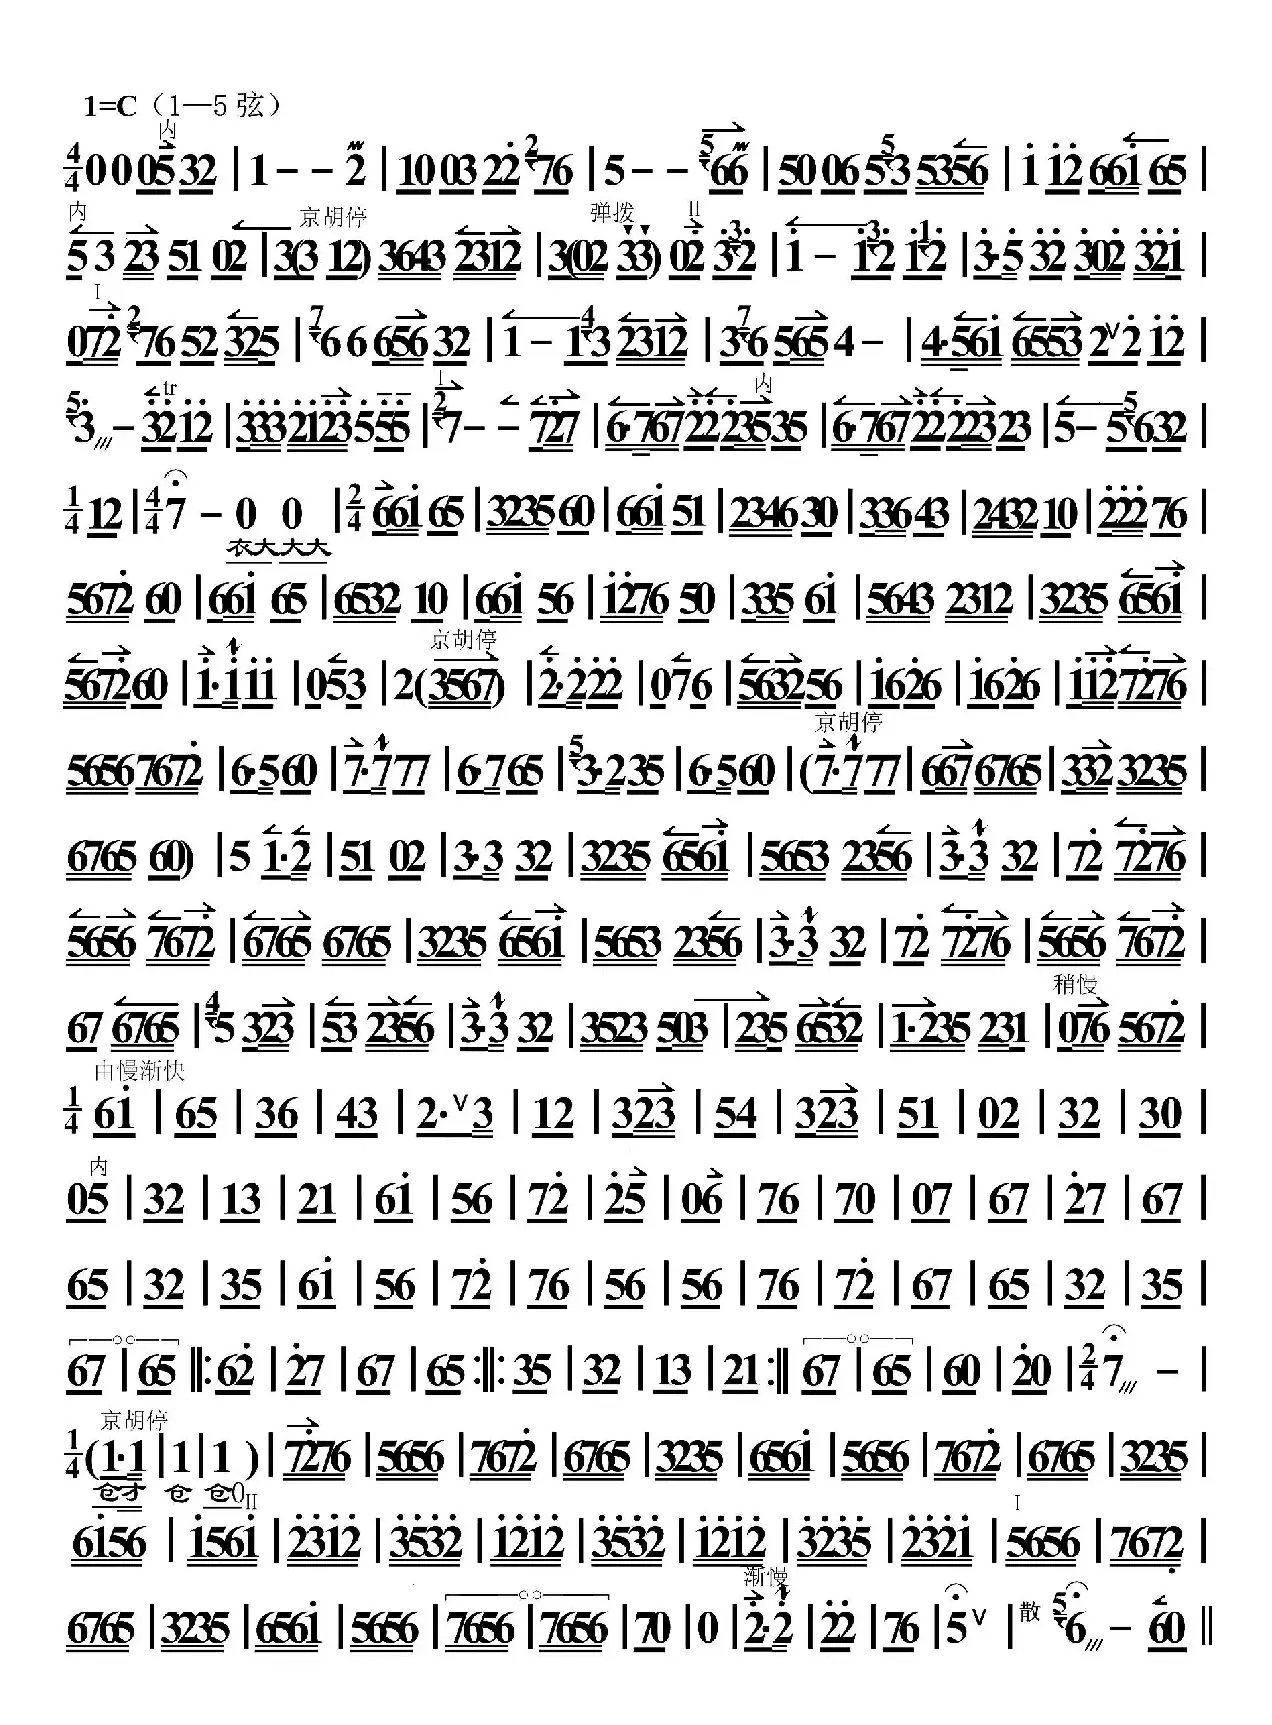 1=C（1—5 弦）
内
4/4 0 0 05 32 | 1 - - 2 | 10 03 22 2 76 | 5 - - 5 66 | 50 06 5 53 5356 | 1 12 661 65 |
内 京胡停 弹拨 II
5 3 23 51 02 | 3(3 12) 3643 2312 | 3(02 33) 02 3 32 | 1 - 1 3 2 1 1 2 | 3·5 32 302 321 |
I
072 2 76 52 325 | 7 6 6 656 32 | 1 - 1 4 3 2312 | 3 7 6 565 4 - | 4·561 6553 2 ∨ 2 12 |
tr I 内
5 3 /// - 32 12 | 333 2123 555 | 2 7 - - 727 | 6·767 22 2353 35 | 6·767 22 223 23 | 5 - 5 5 632 |
1/4 12 | 4/4 7 - 0 0 | 2/4 661 65 | 3235 60 | 661 51 | 2346 30 | 336 43 | 2432 10 | 222 76 |
衣大大大
5672 60 | 661 65 | 6532 10 | 661 56 | 1276 50 | 335 61 | 5643 2312 | 3235 6561 |
京胡停
5672 60 | 1·1 11 | 053 | 2(3567) | 2·2 22 | 076 | 5632 56 | 1626 | 1626 | 112 7276 |
京胡停
5656 7672 | 6·5 60 | 7·7 77 | 6·7 65 | 5 3·2 35 | 6·5 60 | (7·7 77 | 667 6765 | 332 3235 |
6765 60) | 5 1·2 | 51 02 | 3·3 32 | 3235 6561 | 5653 2356 | 3·3 32 | 72 7276 |
5656 7672 | 6765 6765 | 3235 6561 | 5653 2356 | 3·3 32 | 72 7276 | 5656 7672 |
稍慢
67 6765 | 4 5 323 | 53 2356 | 3·3 32 | 3523 503 | 235 6532 | 1·235 231 | 076 5672 |
由慢渐快
1/4 61 | 65 | 36 | 43 | 2·∨3 | 12 | 323 | 54 | 323 | 51 | 02 | 32 | 30 |
内
05 | 32 | 13 | 21 | 61 | 56 | 72 | 25 | 06 | 76 | 70 | 07 | 67 | 27 | 67 |
65 | 32 | 35 | 61 | 56 | 72 | 76 | 56 | 56 | 76 | 72 | 67 | 65 | 32 | 35 |
67 | 65 ‖: 62 | 27 | 67 | 65 :‖: 35 | 32 | 13 | 21 :‖ 67 | 65 | 60 | 20 | 2/4 7 /// - |
京胡停
1/4 (1·1 | 1 | 1 ) | 7276 | 5656 | 7672 | 6765 | 3235 | 6561 | 5656 | 7672 | 6765 | 3235 |
仓才 仓 仓0 II I
6156 | 1561 | 2312 | 3532 | 1212 | 3532 | 1212 | 3235 | 2321 | 5656 | 7672 |
渐慢
6765 | 3235 | 6561 | 5656 | 7656 | 7656 | 70 | 0 | 2·2 | 22 | 76 | 5 ∨ | 散 5 6 /// - 60 ‖